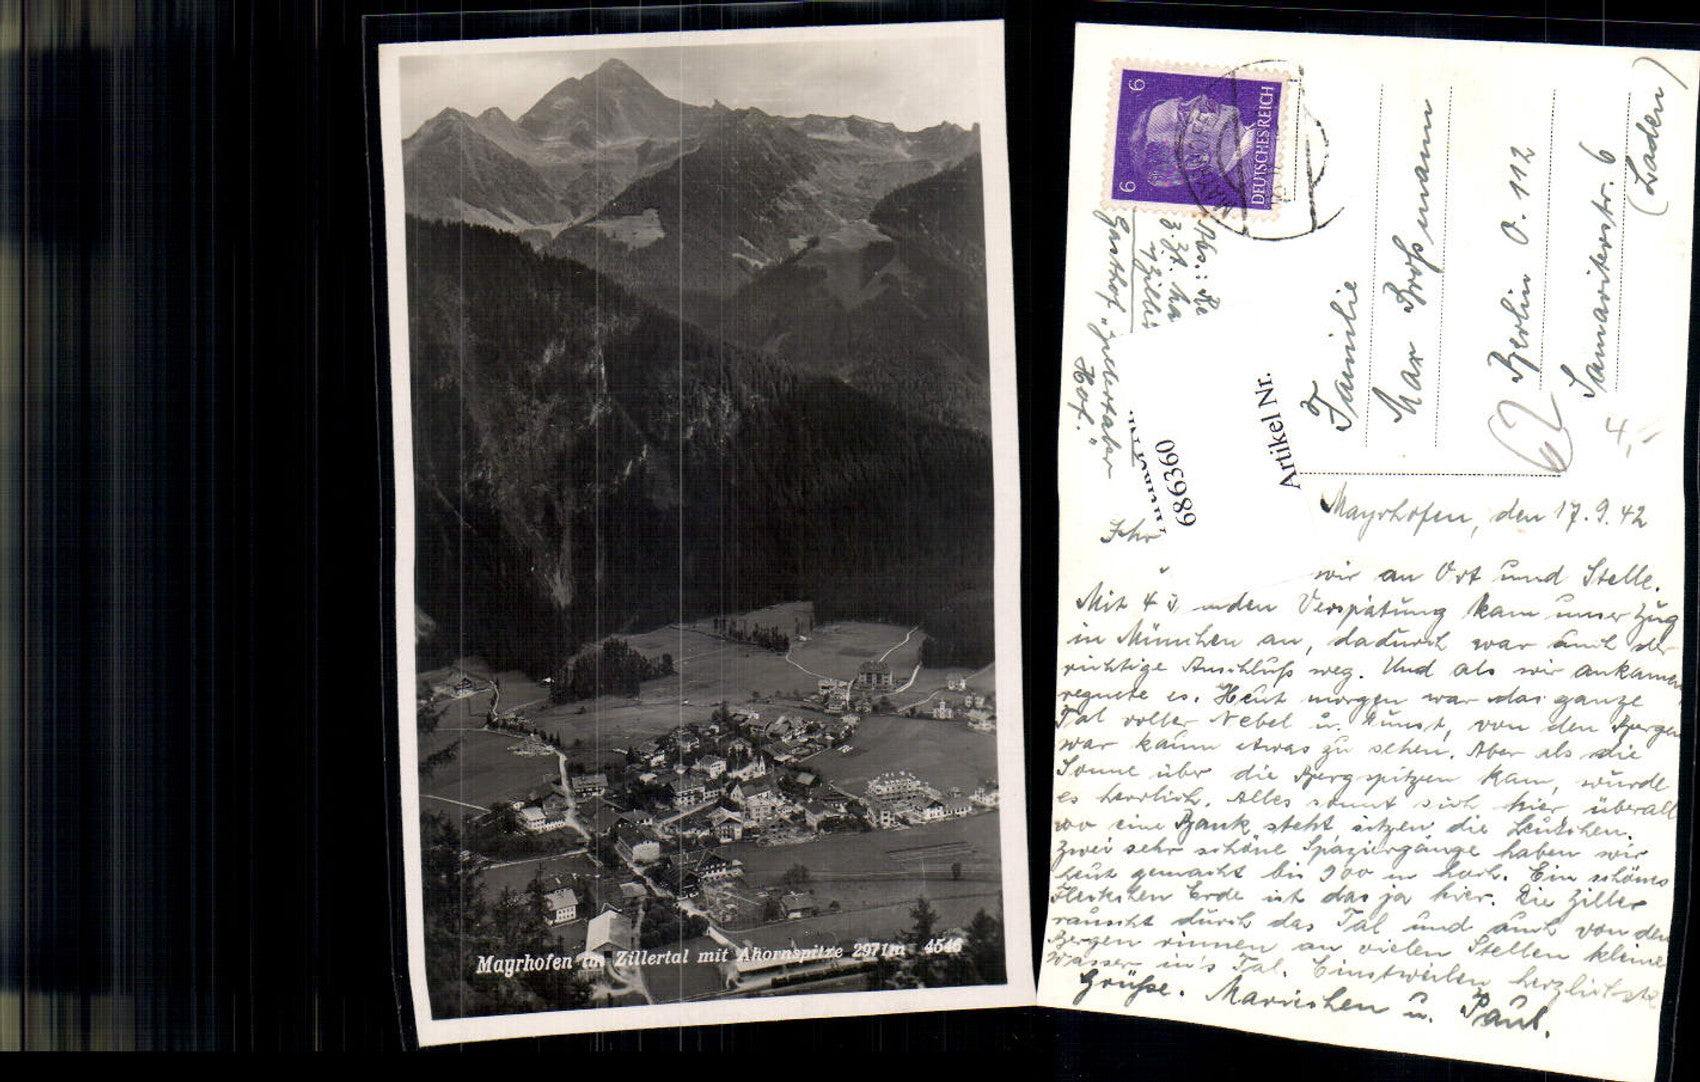 Mayrhofen im Zillertal mit Ahornspitze 2971m 4546
6
6
DEUTSCHES REICH
MAYRHOFEN
Abs.:
z. Zt.
Gasthof "Zillertaler
Hof."
Artikel Nr.
686360
Familie
Max
Berlin O. 112
Samariterstr. 6
(Laden)
62
4,-
Mayrhofen, den 17.9.42
wir an Ort und Stelle.
Mit 4 Verspätung kam unser Zug
in München an, dadurch war auch der
richtige Anschluß weg. Und als wir ankamen
regnete es. Heut morgen war das ganze
Tal voller Nebel u. Dunst, von den Bergen
war kaum etwas zu sehen. Aber als die
Sonne über die Bergspitzen kam, wurde
es herrlich. Alles sonnt sich hier überall
wo eine Bank steht, sitzen die Leutchen.
Zwei sehr schöne Spaziergänge haben wir
heut gemacht bis 900 m hoch. Ein schönes
Fleckchen Erde ist das ja hier. Die Ziller
rauscht durch das Tal und auch von den
Bergen rinnen an vielen Stellen kleine
Wasser in's Tal. Einstweilen herzlichste
Grüße. Mariechen u. Paul.